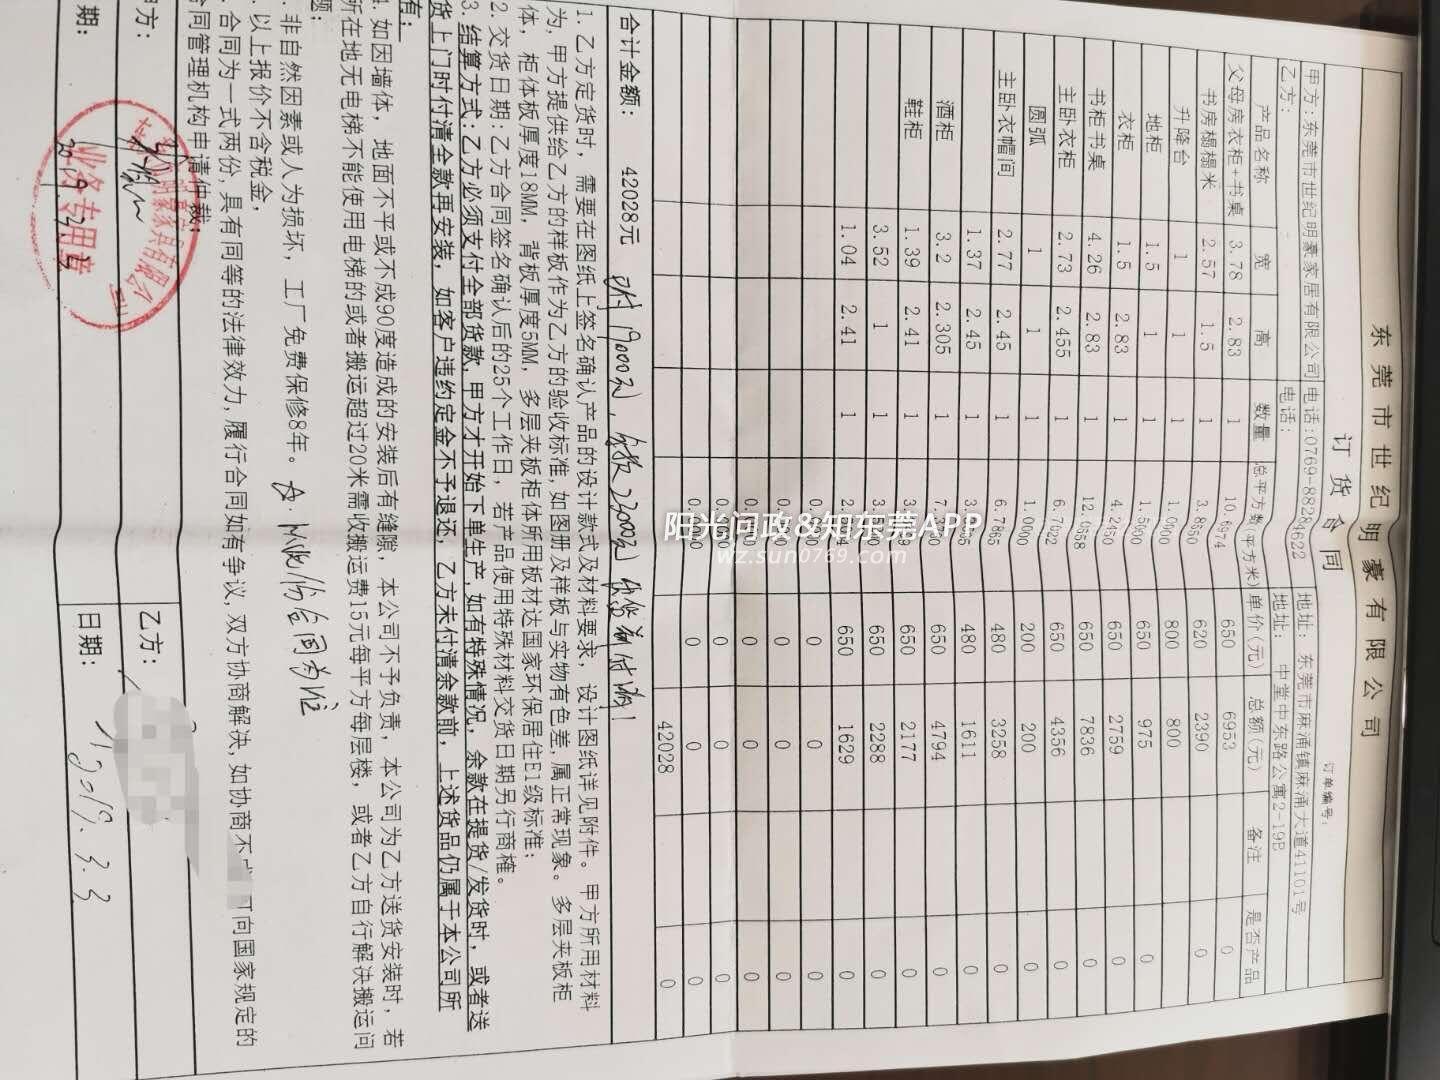 东莞市世纪明豪有限公司
订货合同
订单编号:
甲方:东莞市世纪明豪家居有限公司 电话:0769-88289622 地址: 东莞市麻涌镇麻涌大道41101号
乙方: 电话: 地址: 中堂中东路公寓2-19B
产品名称 宽 高 数量 总平方数(平方米) 单价(元) 总额(元) 备注 是否产品
父母房衣柜+书桌 3.78 2.83 1 10.6974 650 6953 0
书房榻榻米 2.57 1.5 1 3.8550 620 2390 0
升降台 1 1 1 1.0000 800 800
地柜 1.5 1 1 1.5000 650 975 0
衣柜 1.5 2.83 1 4.2450 650 2759 0
书柜书桌 4.26 2.83 1 12.0558 650 7836 0
主卧衣柜 2.73 2.455 1 6.7022 650 4356 0
圆弧 1 1 1 1.0000 200 200 0
主卧衣帽间 2.77 2.45 1 6.7865 480 3258 0
1.37 2.45 1 480 1611 0
酒柜 3.2 2.305 1 650 4794 0
鞋柜 1.39 2.41 1 650 2177 0
3.52 1 1 650 2288 0
1.04 2.41 1 650 1629 0
0 0 0
0 0 0
0 0 0
0 0 0
0 0 0
42028 0
合计金额: 42028元
1.乙方定货时,需要在图纸上签名确认产品的设计款式及材料要求,设计图纸详见附件。甲方所用材料
为,甲方提供给乙方的样板作为乙方的验收标准,如图册及样板与实物有色差,属正常现象。多层夹板柜
体,柜体板厚度18MM,背板厚度5MM,多层夹板柜体所用板材达国家环保居住E1级标准;
2.交货日期:乙方合同签名确认后的25个工作日,若产品使用特殊材料交货日期另行商榷。
3.结算方式:乙方必须支付全部货款,甲方才开始下单生产,如有特殊情况,余款在提货/发货时,或者送
货上门时付清全款再安装,如客户违约定金不予退还,乙方未付清余款前,上述货品仍属于本公司所
有;
4.如因墙体,地面不平或不成90度造成的安装后有缝隙,本公司不予负责,本公司为乙方送货安装时,若
所在地无电梯不能使用电梯的或者搬运超过20米需收搬运费15元每平方每层楼,或者乙方自行解决搬运问
题;
非自然因素或人为损坏,工厂免费保修8年。
以上报价不含税金,
合同为一式两份,具有同等的法律效力,履行合同如有争议,双方协商解决,如协商不 可向国家规定的
合同管理机构申请仲裁;
甲方: 乙方:
期: 日期: 2019.3.3
业务专用章
阳光问政&知东莞APP
wz.sun0769.com